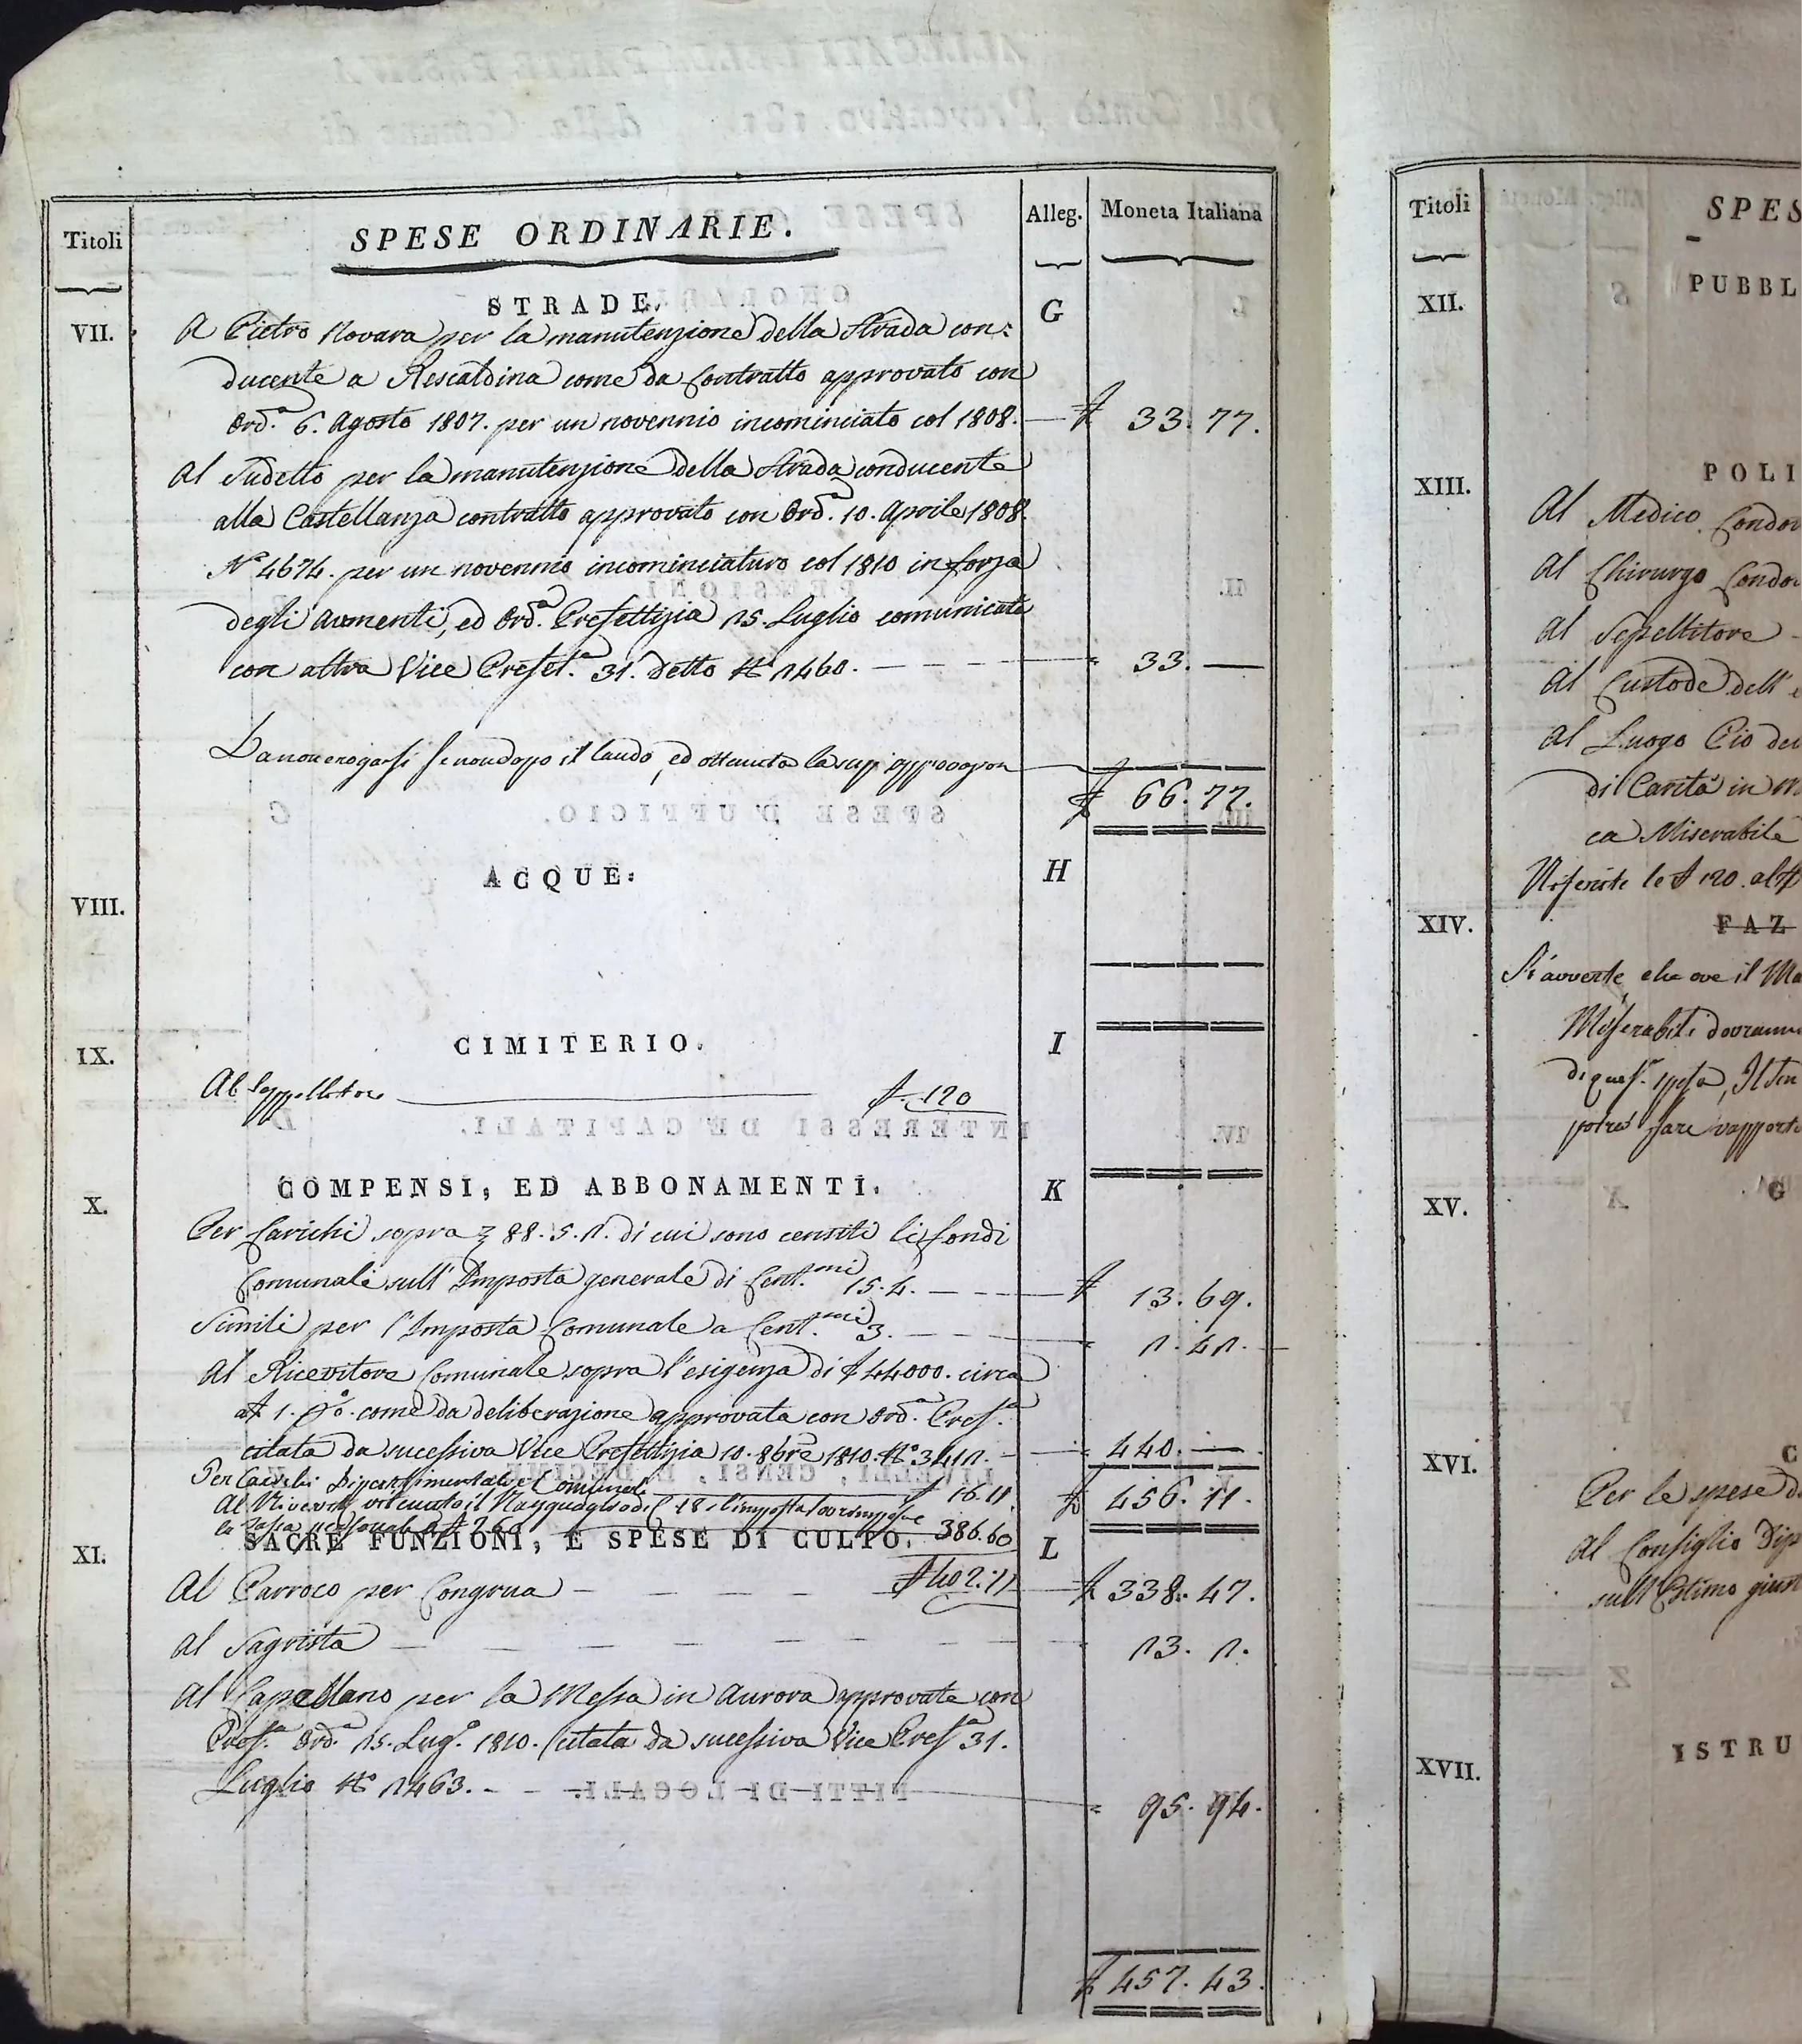 Titoli
SPESE ORDINARIE.
Alleg.
Moneta Italiana
STRADE.
G
VII.
A Pietro Novara per la manutenzione della Strada con=
ducente a Rescaldina come da Contratto approvato con
Ord.ª 6. Agosto 1807. per un novennio incominciato col 1808. — £ 33. 77.
Al Sudetto per la manutenzione della Strada conducente
alla Castellanza contratto approvato con Ord.ª 10. Aprile 1808.
N.º 4674. per un novennio incominciaturo col 1810 in forza
degli aumenti, ed Ord.ª Prefettizia 15. Luglio comunicata
con altra Vice Prefet.ª 31. detto N.º 1460. — — — 33. —
Da non erogarsi se non dopo il laudo, ed ottenuta la sup.
£ 66. 77.
ACQUE.
H
VIII.
CIMITERIO.
I
IX.
Al Seppellitore £. 120
COMPENSI, ED ABBONAMENTI.
K
X.
Per Carichi sopra 88. 5. 1. di cui sono censiti li fondi
Comunali sull' Imposta generale di Cent.mi 15. 4. — — — £ 13. 69.
Simili per l'Imposta Comunale a Cent.mi 3. — — 1. 41.
Al Ricevitore Comunale sopra l'esigenza di £ 44000. circa
a £ 1. p% come da deliberazione approvata con Ord.ª Pref.ª
citata da sucessiva Vice Prefettizia 10. 8bre 1810. N.º 3411. — 440. —
Per Carichi Dipartimentali e Comunali £ 16. 11.
£ 456. 11.
386. 60
SACRE FUNZIONI, E SPESE DI CULTO.
L
XI.
£ 402. 71
Al Parroco per Congrua — — — £ 338. 47.
Al Sagrista — — — — — — 13. 1.
Al Capellano per la Messa in Aurora approvata con
Pref.ª Ord.ª 15. Lug.º 1810. citata da sucessiva Vice Pref.ª 31.
Luglio N.º 1463. — — 95. 94.
£ 457. 43.
Titoli
SPES
XII.
PUBBL
XIII.
POLI
Al Medico Condo
Al Chirurgo Condo
Al Sepellitore
Al Custode dell'
Al Luogo Pio de
di Carità in M
ca Miserabile
Riferite le £ 120. al
XIV.
FAZ
Si avverte, che ove il Ma
Miserabili dovranno
di spesa, Il Sin
potrà fare rapporto
XV.
G
XVI.
C
Per le spese d
Al Consiglio Dip
sull' Estimo giust
XVII.
ISTRU